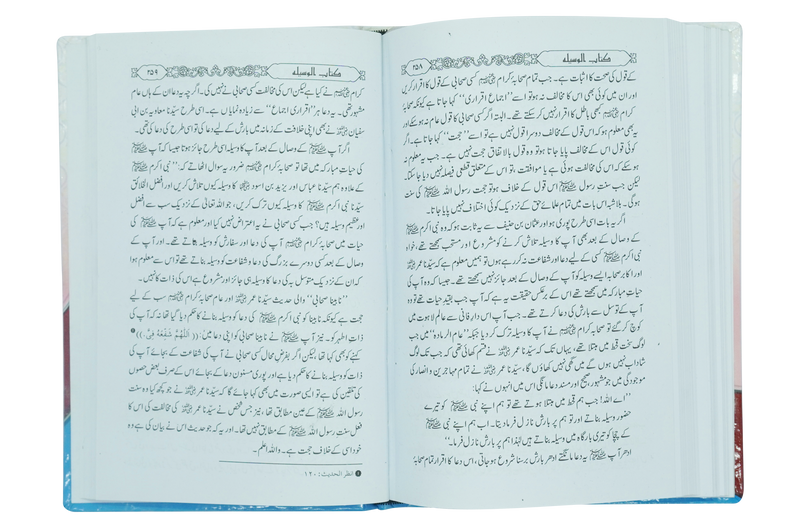 ۲۵۸ کتاب الوسیلہ
کے قول کی صحت کا اثبات ہے۔ جب تمام صحابہ کرام ﷢ کسی صحابی کے قول کا اقرار کریں
اور ان میں کوئی بھی اس کا مخالف نہ ہو تو اسے ’’اجماع اقراری‘‘ کہا جاتا ہے کیونکہ صحابہ
کرام ﷢ کبھی باطل کا اقرار نہیں کر سکتے تھے۔ البتہ اگر کسی صحابی کا قول عام نہ ہو سکے اور
یہ بھی معلوم ہو کہ اس قول کے مخالف دوسرا قول نہیں ہے تو اسے ’’حجت‘‘ کہا جاتا ہے۔ اگر
کوئی قول اس کے مخالف پایا جاتا ہو تو وہ قول بالاتفاق حجت نہیں ہے۔ جب یہ معلوم نہ
ہو سکے کہ اس کی مخالفت ہوئی ہے یا موافقت، تو اس کے متعلق قطعی فیصلہ نہیں دیا جا سکتا۔
لیکن جب سنتِ رسول ﷺ اس قول کے خلاف ہو تو حجت رسول اللہ ﷺ کی سنت
ہو گی۔ بلاشبہ اس بات میں تمام علمائے حق کے نزدیک کوئی اختلاف نہیں پایا جاتا۔
اگر یہ بات اسی طرح پوری ہو اور عثمان بن حنیف سے یہ ثابت ہو کہ وہ نبی اکرم ﷺ
کے وصال کے بعد بھی آپ کا وسیلہ تلاش کرنے کو مشروع اور مستحب سمجھتے تھے، خواہ
نبی اکرم ﷺ کسی کے لیے دعا اور شفاعت نہ کر رہے ہوں تو ہمیں معلوم ہے کہ سیدنا عمر ﷜
اور اکابر صحابہ ایسے وسیلہ کو آپ کے وصال کے بعد جائز نہیں سمجھتے تھے۔ جیسا کہ وہ آپ کی
حیاتِ مبارکہ میں سمجھتے تھے۔ اس کے برعکس حقیقت یہ ہے کہ آپ جب بقیدِ حیات تھے تو وہ
آپ کے توسل سے بارش کی دعا کرتے تھے۔ جب آپ اس دارِ فانی سے عالمِ لاہوت میں
کوچ کر گئے تو صحابہ کرام ﷢ نے آپ کا وسیلہ ترک کر دیا جبکہ ’’عام الرمادہ‘‘ میں جب
لوگ سخت قحط میں مبتلا تھے، یہاں تک کہ سیدنا عمر ﷜ نے قسم کھائی تھی کہ جب تک لوگ
شاداب نہیں ہوں گے میں گھی نہیں کھاؤں گا، سیدنا عمر ﷜ نے تمام مہاجرین و انصار کی
موجودگی میں جو مشہور، صحیح اور مستند دعا مانگی اس میں انہوں نے کہا:
’’اے اللہ! جب ہم قحط میں مبتلا ہوتے تھے تو ہم اپنے نبی ﷺ کو تیرے
حضور وسیلہ بناتے اور تو ہم پر بارش نازل فرما دیتا۔ اب ہم اپنے نبی ﷺ
کے چچا کو تیری بارگاہ میں وسیلہ بناتے ہیں لہٰذا ہم پر بارش نازل فرما۔‘‘
ادھر آپ ﷺ یہ دعا مانگتے ادھر بارش برسنا شروع ہو جاتی، اس دعا کا اقرار تمام صحابہ
کتاب الوسیلہ ۲۵۹
کرام ﷢ نے کیا ہے لیکن اس کی مخالفت کسی صحابی نے نہیں کی۔ اگرچہ یہ دعا ان کے ہاں عام
مشہور تھی۔ یہ دعا ہر ’’اقراری اجماع‘‘ سے زیادہ نمایاں ہے۔ اسی طرح سیدنا معاویہ بن ابی
سفیان ﷜ نے بھی اپنی خلافت کے زمانہ میں بارش کے لیے دعا کی تو اسی طرح کی دعا کی تھی۔
اگر آپ ﷺ کے وصال کے بعد آپ کا وسیلہ اسی طرح جائز ہوتا جیسا کہ آپ ﷺ
کی حیاتِ مبارکہ میں تھا تو صحابہ کرام ﷢ ضرور یہ سوال اٹھاتے کہ: ’’نبی اکرم ﷺ
کے علاوہ ہم سیدنا عباس اور یزید بن اسود ﷠ کا وسیلہ کیوں تلاش کریں اور افضل الخلائق
سیدنا نبی اکرم ﷺ کا وسیلہ کیوں ترک کریں، جو اللہ تعالیٰ کے نزدیک سب سے افضل
اور عظیم وسیلہ ہیں؟ جب کسی صحابی نے یہ اعتراض نہیں کیا اور معلوم ہے کہ آپ ﷺ کی
حیات میں صحابہ کرام ﷢ آپ کی دعا اور سفارش کو وسیلہ بناتے تھے۔ اور آپ کے
وصال کے بعد کسی دوسرے بزرگ کی دعا و شفاعت کو وسیلہ بناتے تھے تو اس سے معلوم ہوا
کہ ان کے نزدیک متوسل بہ کی دعا کا وسیلہ ہی جائز اور مشروع ہے اس کی ذات کا نہیں۔
’’نابینا صحابی‘‘ والی حدیث سیدنا عمر ﷜ اور عام صحابہ کرام ﷢ سب کے لیے
حجت ہے کیونکہ نابینا کو نبی اکرم ﷺ کی دعا کو وسیلہ بنانے کا حکم دیا گیا تھا، نہ کہ آپ کی
ذاتِ اطہر کو۔ نیز آپ ﷺ نے نابینا صحابی کو اپنی دعا میں: ((اَللّٰهُمَّ شَفِّعْهُ فِيَّ۔)) ❶
کہنے کو بھی کہا تھا، لیکن اگر بفرضِ محال کسی صحابی نے آپ کی شفاعت کے بجائے آپ کی
ذات کو وسیلہ بنانے کا حکم دیا ہے اور پوری مسنون دعا کے بجائے اس کے صرف بعض حصوں
کی تلقین کی ہے تو ایسی صورت میں بھی کہا جائے گا کہ سیدنا عمر ﷜ نے جو کچھ کیا وہ سنتِ
رسول اللہ ﷺ کے عین مطابق تھا، نیز جس شخص نے سیدنا عمر ﷜ کی مخالفت کی اس کا
فعل سنتِ رسول اللہ ﷺ کے مطابق نہیں تھا۔ اور یہ کہ جو حدیث اس نے بیان کی ہے وہ
خود اسی کے خلاف حجت ہے۔ واللہ اعلم۔
❶ انظر الحدیث: ۱۲۰۔